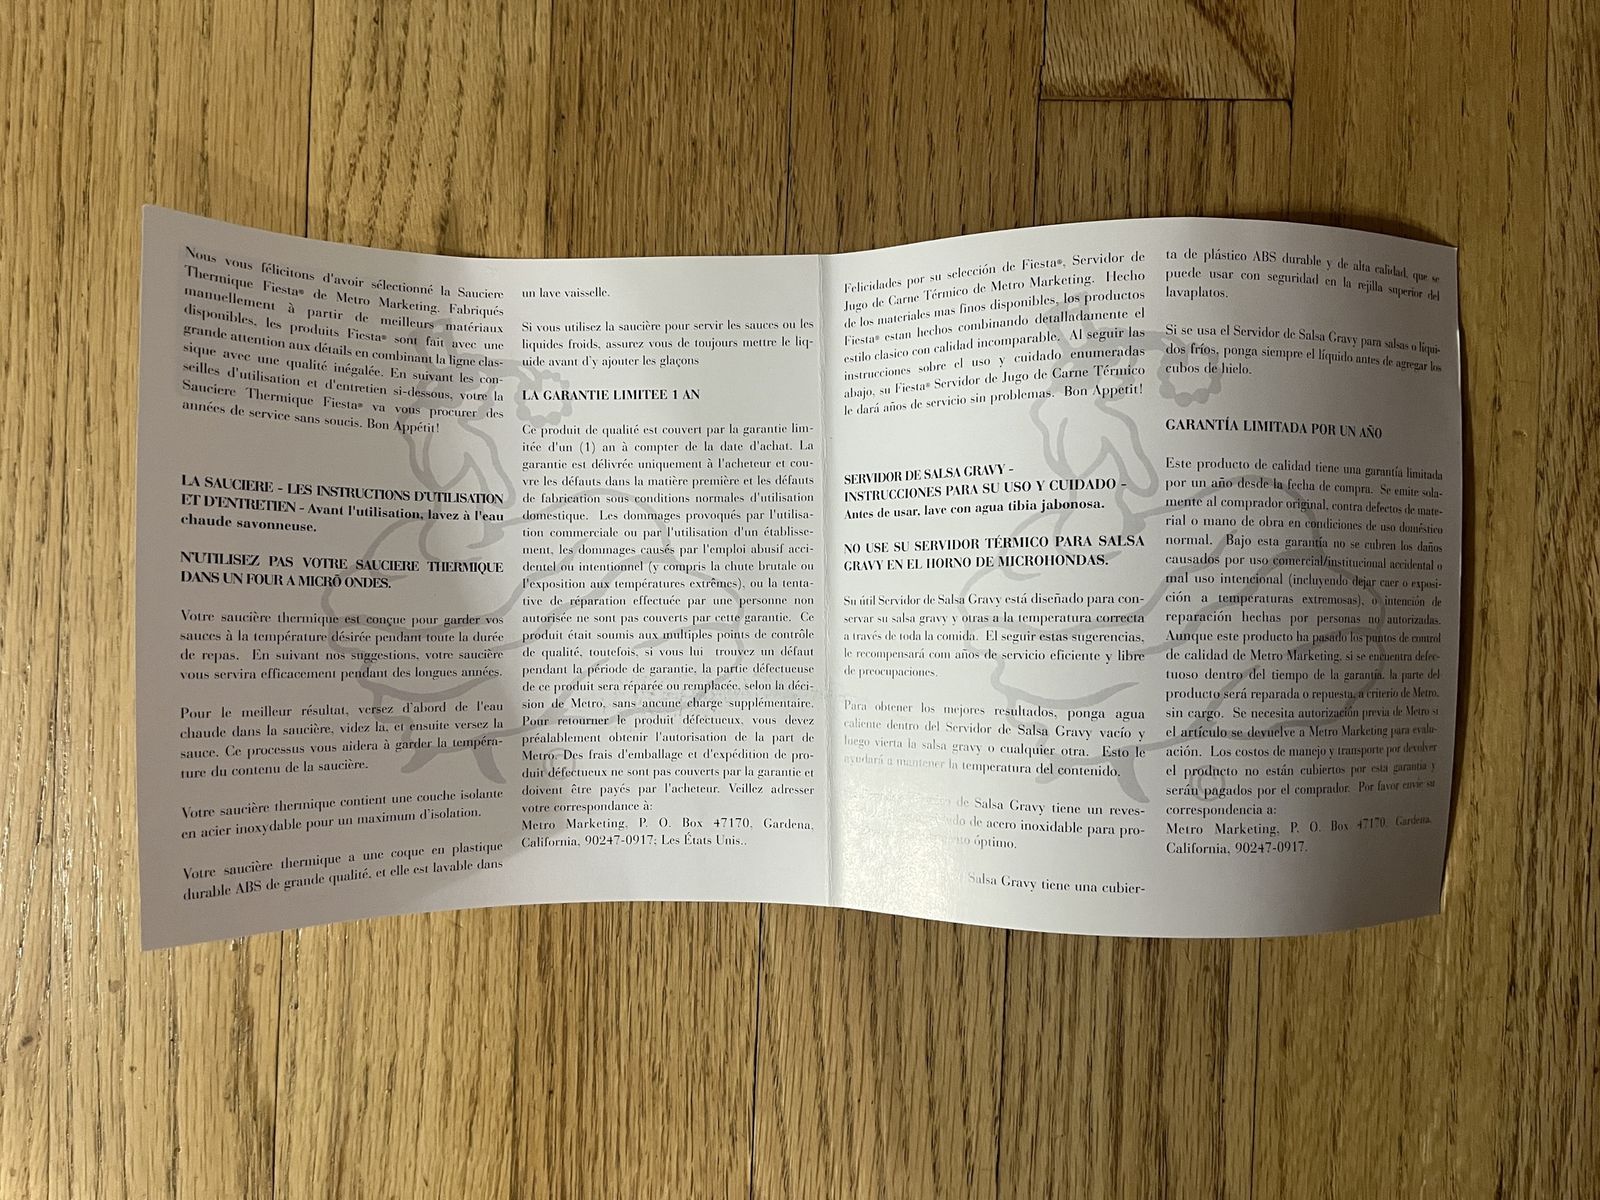 Nous vous félicitons d'avoir sélectionné la Sauciere
Thermique Fiesta® de Metro Marketing. Fabriqués
manuellement à partir de meilleurs matériaux
disponibles, les produits Fiesta® sont fait avec une
grande attention aux détails en combinant la ligne clas-
sique avec une qualité inégalée. En suivant les con-
seilles d'utilisation et d'entretien si-dessous, votre la
Sauciere Thermique Fiesta® va vous procurer des
années de service sans soucis. Bon Appétit!
LA SAUCIERE - LES INSTRUCTIONS D'UTILISATION
ET D'ENTRETIEN - Avant l'utilisation, lavez à l'eau
chaude savonneuse.
N'UTILISEZ PAS VOTRE SAUCIERE THERMIQUE
DANS UN FOUR A MICRÒ ONDES.
Votre saucière thermique est conçue pour garder vos
sauces à la température désirée pendant toute la durée
de repas. En suivant nos suggestions, votre saucière
vous servira efficacement pendant des longues années.
Pour le meilleur résultat, versez d'abord de l'eau
chaude dans la saucière, videz la, et ensuite versez la
sauce. Ce processus vous aidera à garder la températ-
ture du contenu de la saucière.
Votre saucière thermique contient une couche isolante
en acier inoxydable pour un maximum d'isolation.
Votre saucière thermique a une coque en plastique
durable ABS de grande qualité, et elle est lavable dans
un lave vaisselle.
Si vous utilisez la saucière pour servir les sauces ou les
liquides froids, assurez vous de toujours mettre le liq-
uide avant d'y ajouter les glaçons
LA GARANTIE LIMITEE 1 AN
Ce produit de qualité est couvert par la garantie lim-
itée d'un (1) an à compter de la date d'achat. La
garantie est délivrée uniquement à l'acheteur et cou-
vre les défauts dans la matière première et les défauts
de fabrication sous conditions normales d'utilisation
domestique. Les dommages provoqués par l'utilisa-
tion commerciale ou par l'utilisation d'un établisse-
ment, les dommages causés par l'emploi abusif acci-
dentel ou intentionnel (y compris la chute brutale ou
l'exposition aux températures extrêmes), ou la tenta-
tive de réparation effectuée par une personne non
autorisée ne sont pas couverts par cette garantie. Ce
produit était soumis aux multiples points de contrôle
de qualité, toutefois, si vous lui trouvez un défaut
pendant la période de garantie, la partie défectueuse
de ce produit sera réparée ou remplacée, selon la déci-
sion de Metro, sans aucune charge supplémentaire.
Pour retourner le produit défectueux, vous devez
préalablement obtenir l'autorisation de la part de
Metro. Des frais d'emballage et d'expédition de pro-
duit défectueux ne sont pas couverts par la garantie et
doivent être payés par l'acheteur. Veillez adresser
votre correspondance à:
Metro Marketing, P. O. Box 47170, Gardena,
California, 90247-0917; Les États Unis..
Felicidades por su selección de Fiesta®, Servidor de
Jugo de Carne Térmico de Metro Marketing. Hecho
de los materiales mas finos disponibles, los productos
Fiesta® estan hechos combinando detalladamente el
estilo clasico con calidad incomparable. Al seguir las
instrucciones sobre el uso y cuidado enumeradas
abajo, su Fiesta® Servidor de Jugo de Carne Térmico
le dará años de servicio sin problemas. Bon Appetit!
SERVIDOR DE SALSA GRAVY -
INSTRUCCIONES PARA SU USO Y CUIDADO -
Antes de usar, lave con agua tíbia jabonosa.
NO USE SU SERVIDOR TÉRMICO PARA SALSA
GRAVY EN EL HORNO DE MICROHONDAS.
Su útil Servidor de Salsa Gravy está diseñado para con-
servar su salsa gravy y otras a la temperatura correcta
a través de toda la comida. El seguir estas sugerencias,
le recompensará com años de servicio eficiente y libre
de preocupaciones.
Para obtener los mejores resultados, ponga agua
caliente dentro del Servidor de Salsa Gravy vacío y
luego vierta la salsa gravy o cualquier otra. Esto le
ayudará a mantener la temperatura del contenido.
de Salsa Gravy tiene un reves-
de acero inoxidable para pro-
óptimo.
Salsa Gravy tiene una cubier-
ta de plástico ABS durable y de alta calidad, que se
puede usar con seguridad en la rejilla superior del
lavaplatos.
Si se usa el Servidor de Salsa Gravy para salsas o líqui-
dos fríos, ponga siempre el líquido antes de agregar los
cubos de hielo.
GARANTÍA LIMITADA POR UN AÑO
Este producto de calidad tiene una garantía limitada
por un año desde la fecha de compra. Se emite sola-
mente al comprador original, contra defectos de mate-
rial o mano de obra en condiciones de uso doméstico
normal. Bajo esta garantía no se cubren los daños
causados por uso comercial/institucional accidental o
mal uso intencional (incluyendo dejar caer o exposi-
ción a temperaturas extremosas), o intención de
reparación hechas por personas no autorizadas.
Aunque este producto ha pasado los puntos de control
de calidad de Metro Marketing, si se encuentra defec-
tuoso dentro del tiempo de la garantía, la parte del
producto será reparada o repuesta, a criterio de Metro,
sin cargo. Se necesita autorización previa de Metro si
el artículo se devuelve a Metro Marketing para evalu-
ación. Los costos de manejo y transporte por devolver
el producto no están cubiertos por esta garantía y
serán pagados por el comprador. Por favor envíe su
correspondencia a:
Metro Marketing, P. O. Box 47170, Gardena,
California, 90247-0917.